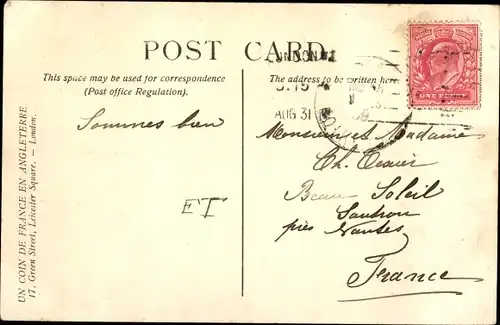 POST CARD.
This space may be used for correspondence
(Post office Regulation).
The address to be written here
AUG 31
ONE PENNY
Sommes bien
ET
Monsieur et Madame
Ch. Texier
Beau Soleil
Sautron
près Nantes
France
UN COIN DE FRANCE EN ANGLETERRE
17, Green Street, Leicester Square. — London.